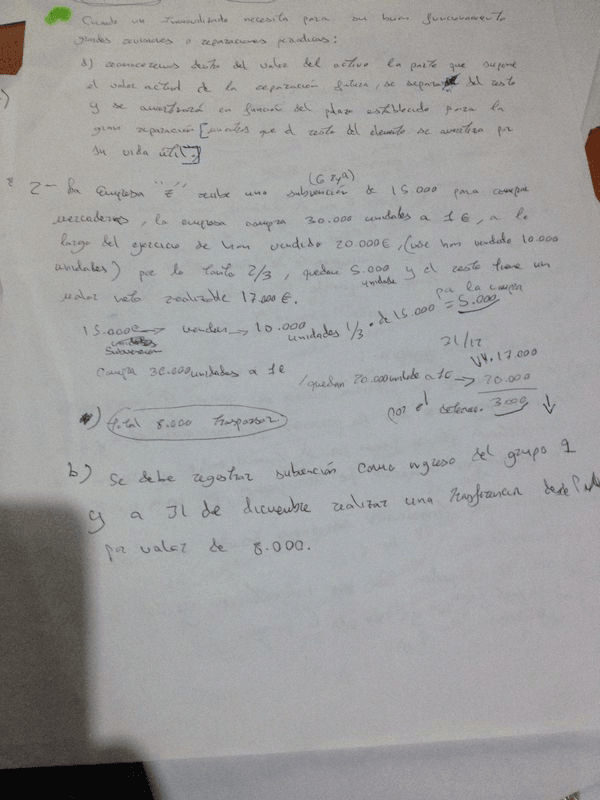 Cuando un inmovilizado necesita para su buen funcionamiento
grandes revisiones o reparaciones periódicas:
d) reconoceremos dentro del valor del activo la parte que supone
el valor actual de la reparación futura, se separa del resto
y se amortizará en función del plazo establecido para la
gran reparación [mientras que el resto del elemento se amortiza por
su vida útil.]
(G 2 y 9)
2- La empresa "Z" recibe una subvención de 15.000 para comprar
mercaderías, la empresa compra 30.000 unidades a 1€, a lo
largo del ejercicio se han vendido 20.000€, (use han vendido 10.000
unidades) por lo tanto 2/3, quedan 5.000 y el resto tiene un
unidades
valor neto realizable 17.000€.
15.000€ → venden → 10.000 unidades 1/3 · de 15.000 = 5.000
pa la compra
unidades
Subvención
31/12
Compra 30.000 unidades a 1€ / quedan 20.000 unidade a 1€ → 20.000
VN. 17.000
por el deterioro. 3.000 ↓
total 8.000 traspasar.
b) Se debe registrar subvención como ingreso del grupo 9
y a 31 de diciembre realizar una transferencia desde
por valor de 8.000.